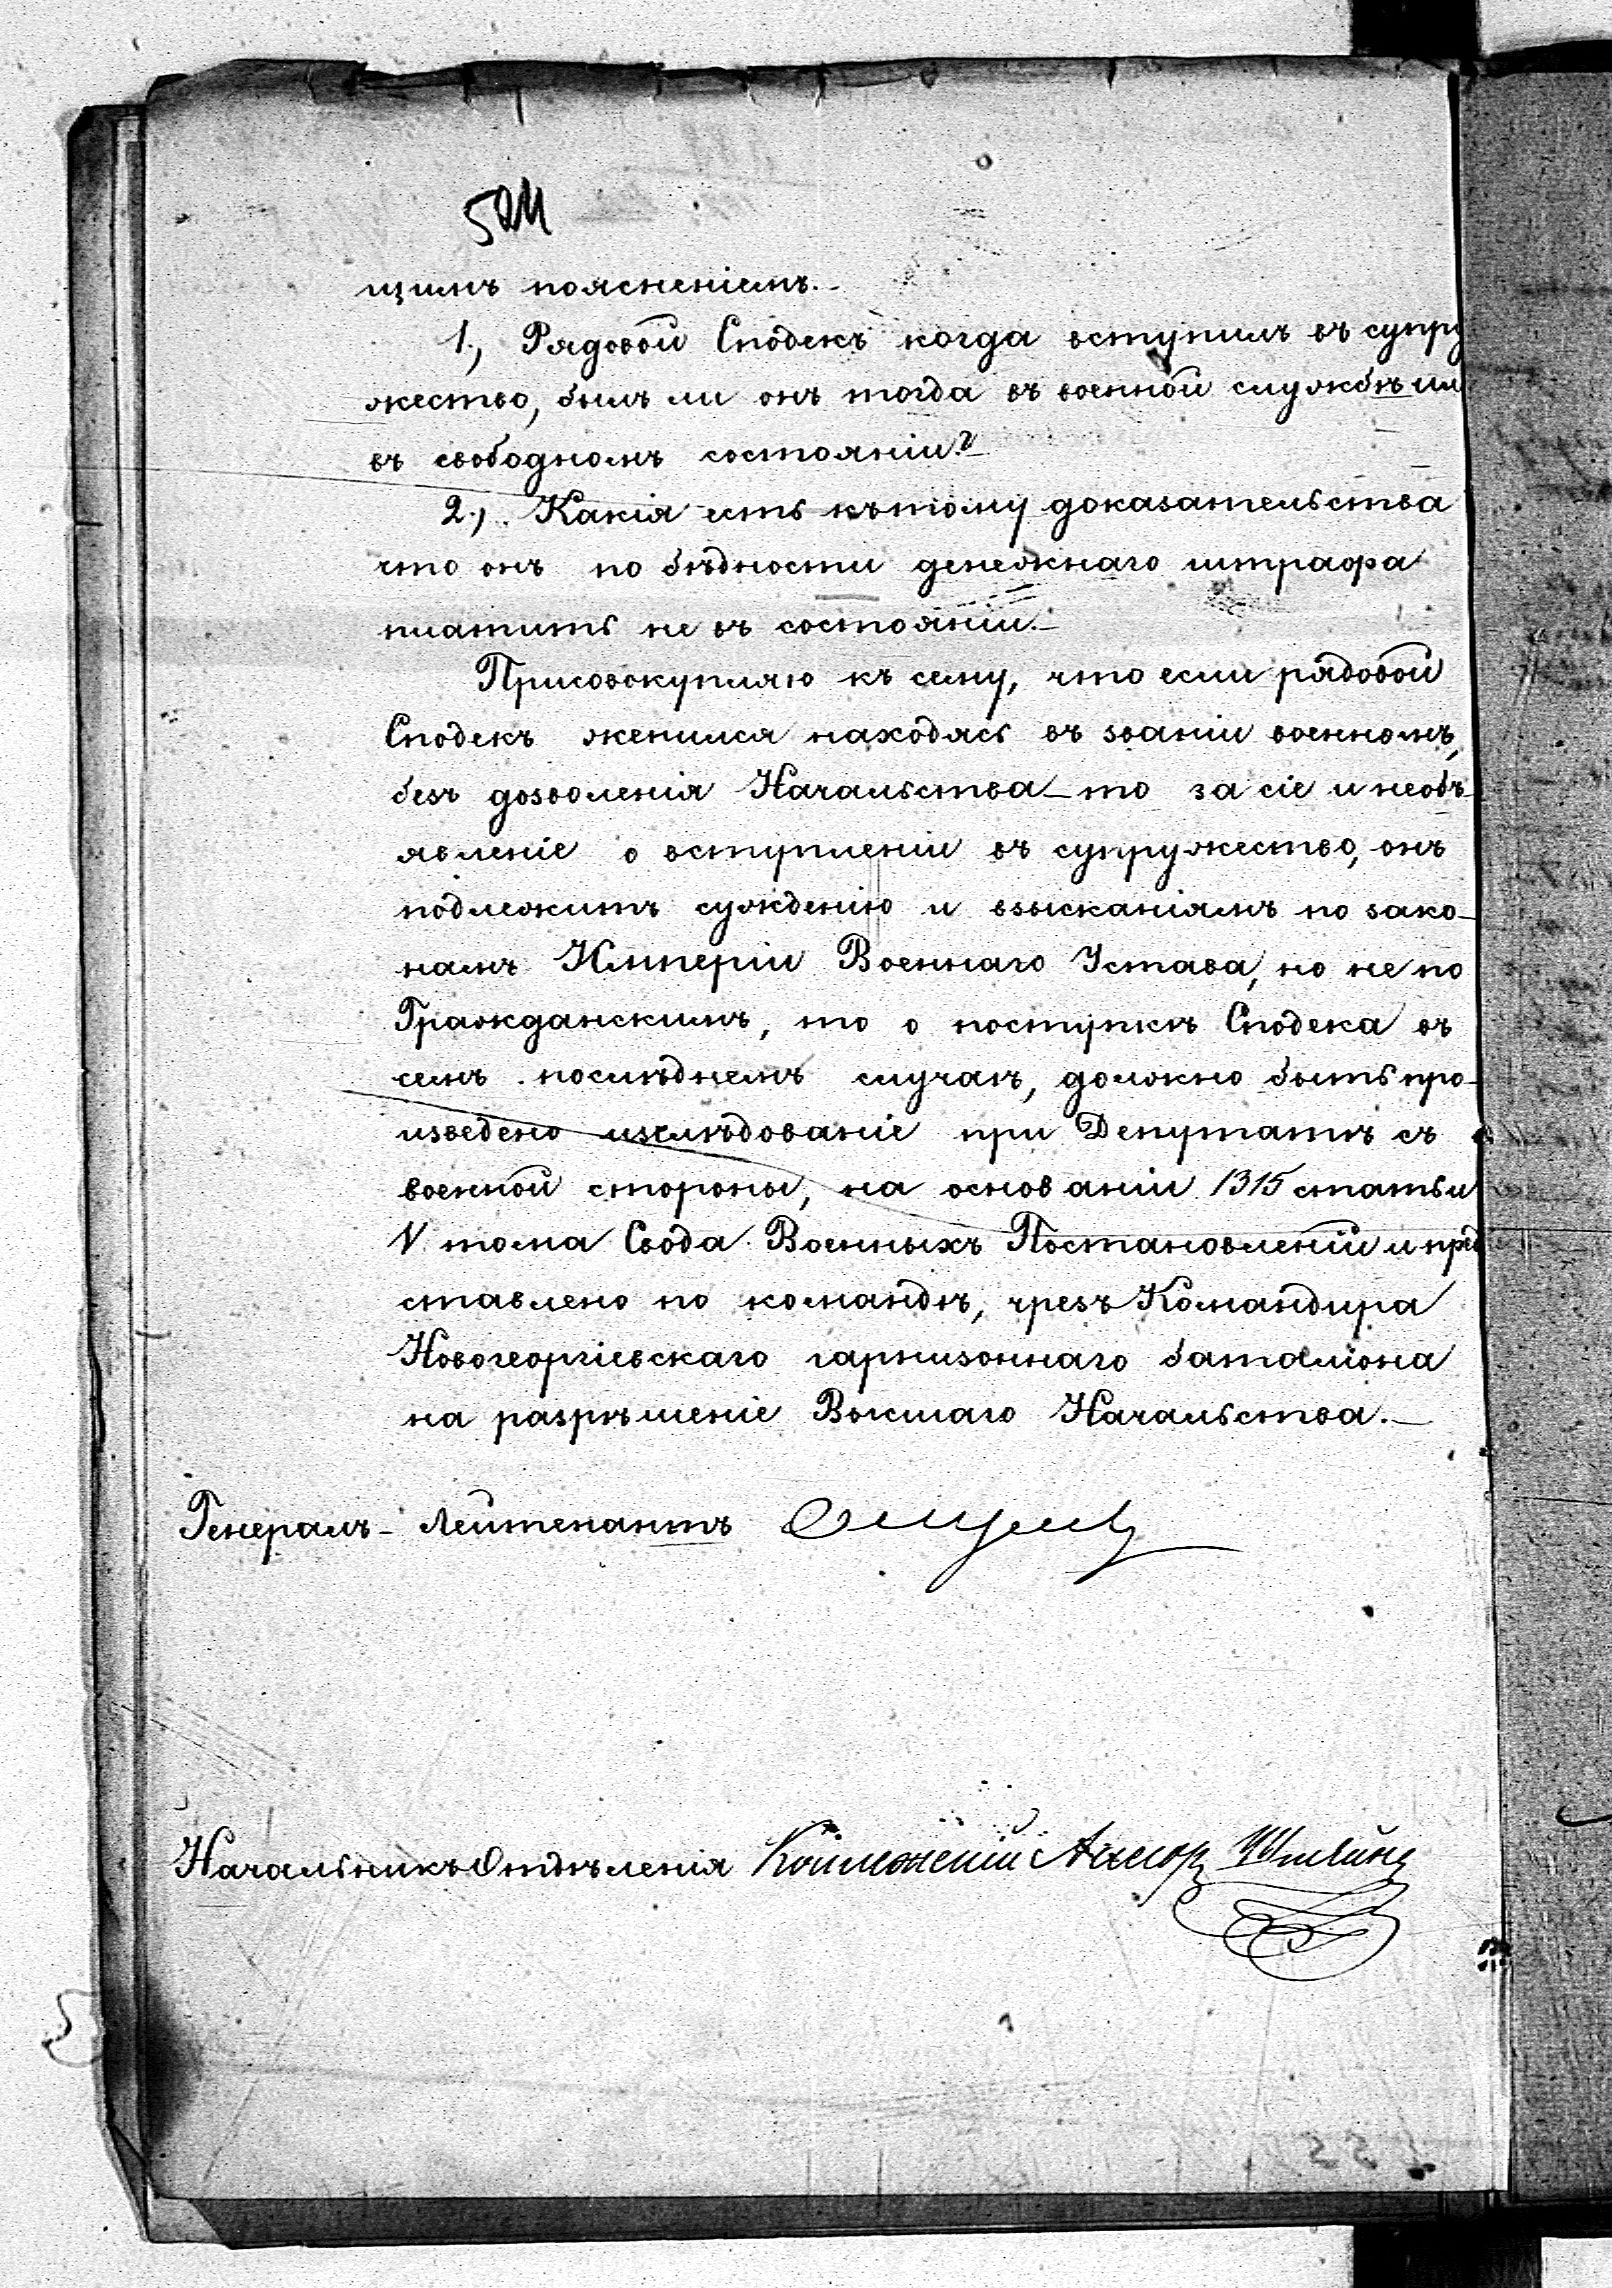 щимъ поясненіемъ.–
1., Рядовой Сподекъ когда вступилъ въ супру
жество, былъ ли онъ тогда въ военной службѣ или
въ свободномъ состояніи?–
2.,. Какія есть къ тому доказательства
что онъ по бѣдности денежнаго штрафа
платить не въ состояніи.–
Присовокупляю къ сему, что если рядовой
Сподекъ женился находясь въ званіи военномъ,
безъ дозволенія Начальства – то за сіе и необъ–
явленіе о вступленіи въ супружество, онъ
подлежитъ сужденію и взысканіямъ по зако–
намъ Имперіи Военнаго Устава, но не по
Гражданскимъ, то о поступкѣ Сподека въ
семъ послѣднемъ случаѣ, должно быть про–
изведено изслѣдованіе при Депутатѣ съ
военной стороны, на основаніи 1315 статьи
V тома Свода Военныхъ Постановленій и пред
ставлено по командѣ, чрезъ Командира
Новогеоргіевскаго гарнизоннаго баталіона
на разрѣшеніе Высшаго Начальства.–
Генералъ– Лейтенантъ
Начальникъ Отдѣленія Коллежскій Ассесоръ